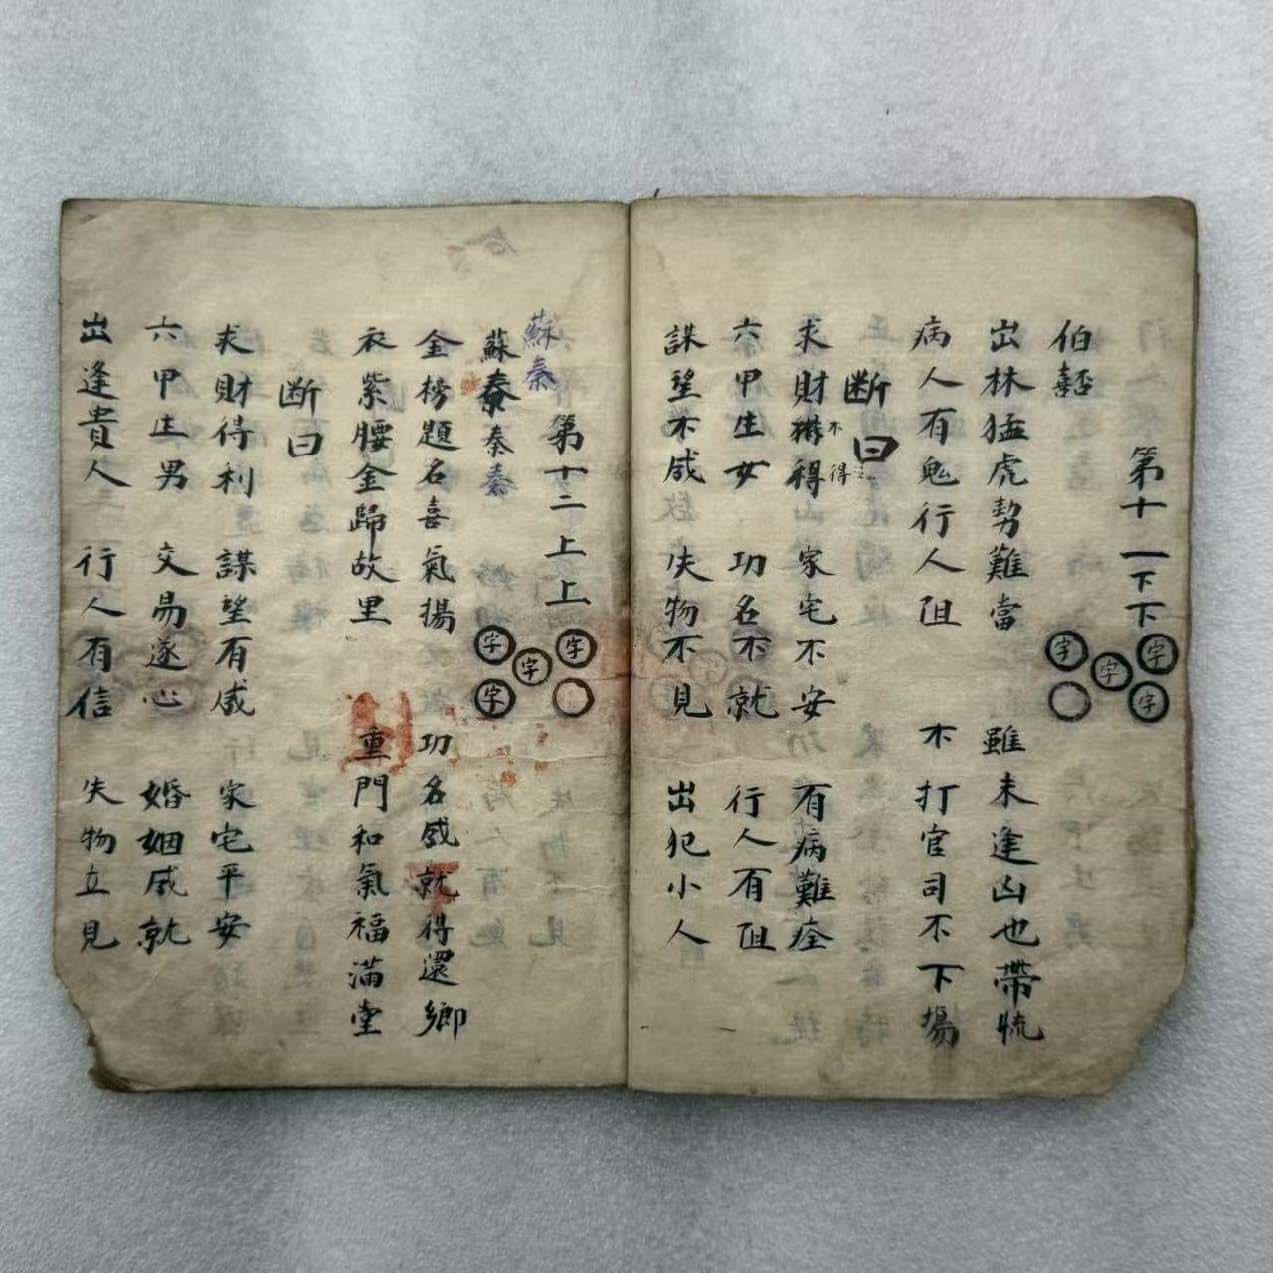 第十一下下
字 字 字 字
伯嚭
出林猛虎势難當 雖未逢凶也帶慌
病人有鬼行人阻 不打官司不下場
断曰
求財難得 家宅不安 有病難痊
不得
六甲生女 功名不就 行人有阻
謀望不成 失物不見 出犯小人
第十二上上
字 字 字 字
蘇秦
蘇秦秦秦
金榜題名喜氣揚 功名成就得還鄉
衣紫腰金歸故里 重門和氣福滿堂
断曰
求財得利 謀望有成 家宅平安
六甲生男 交易遂心 婚姻成就
出逢貴人 行人有信 失物立見